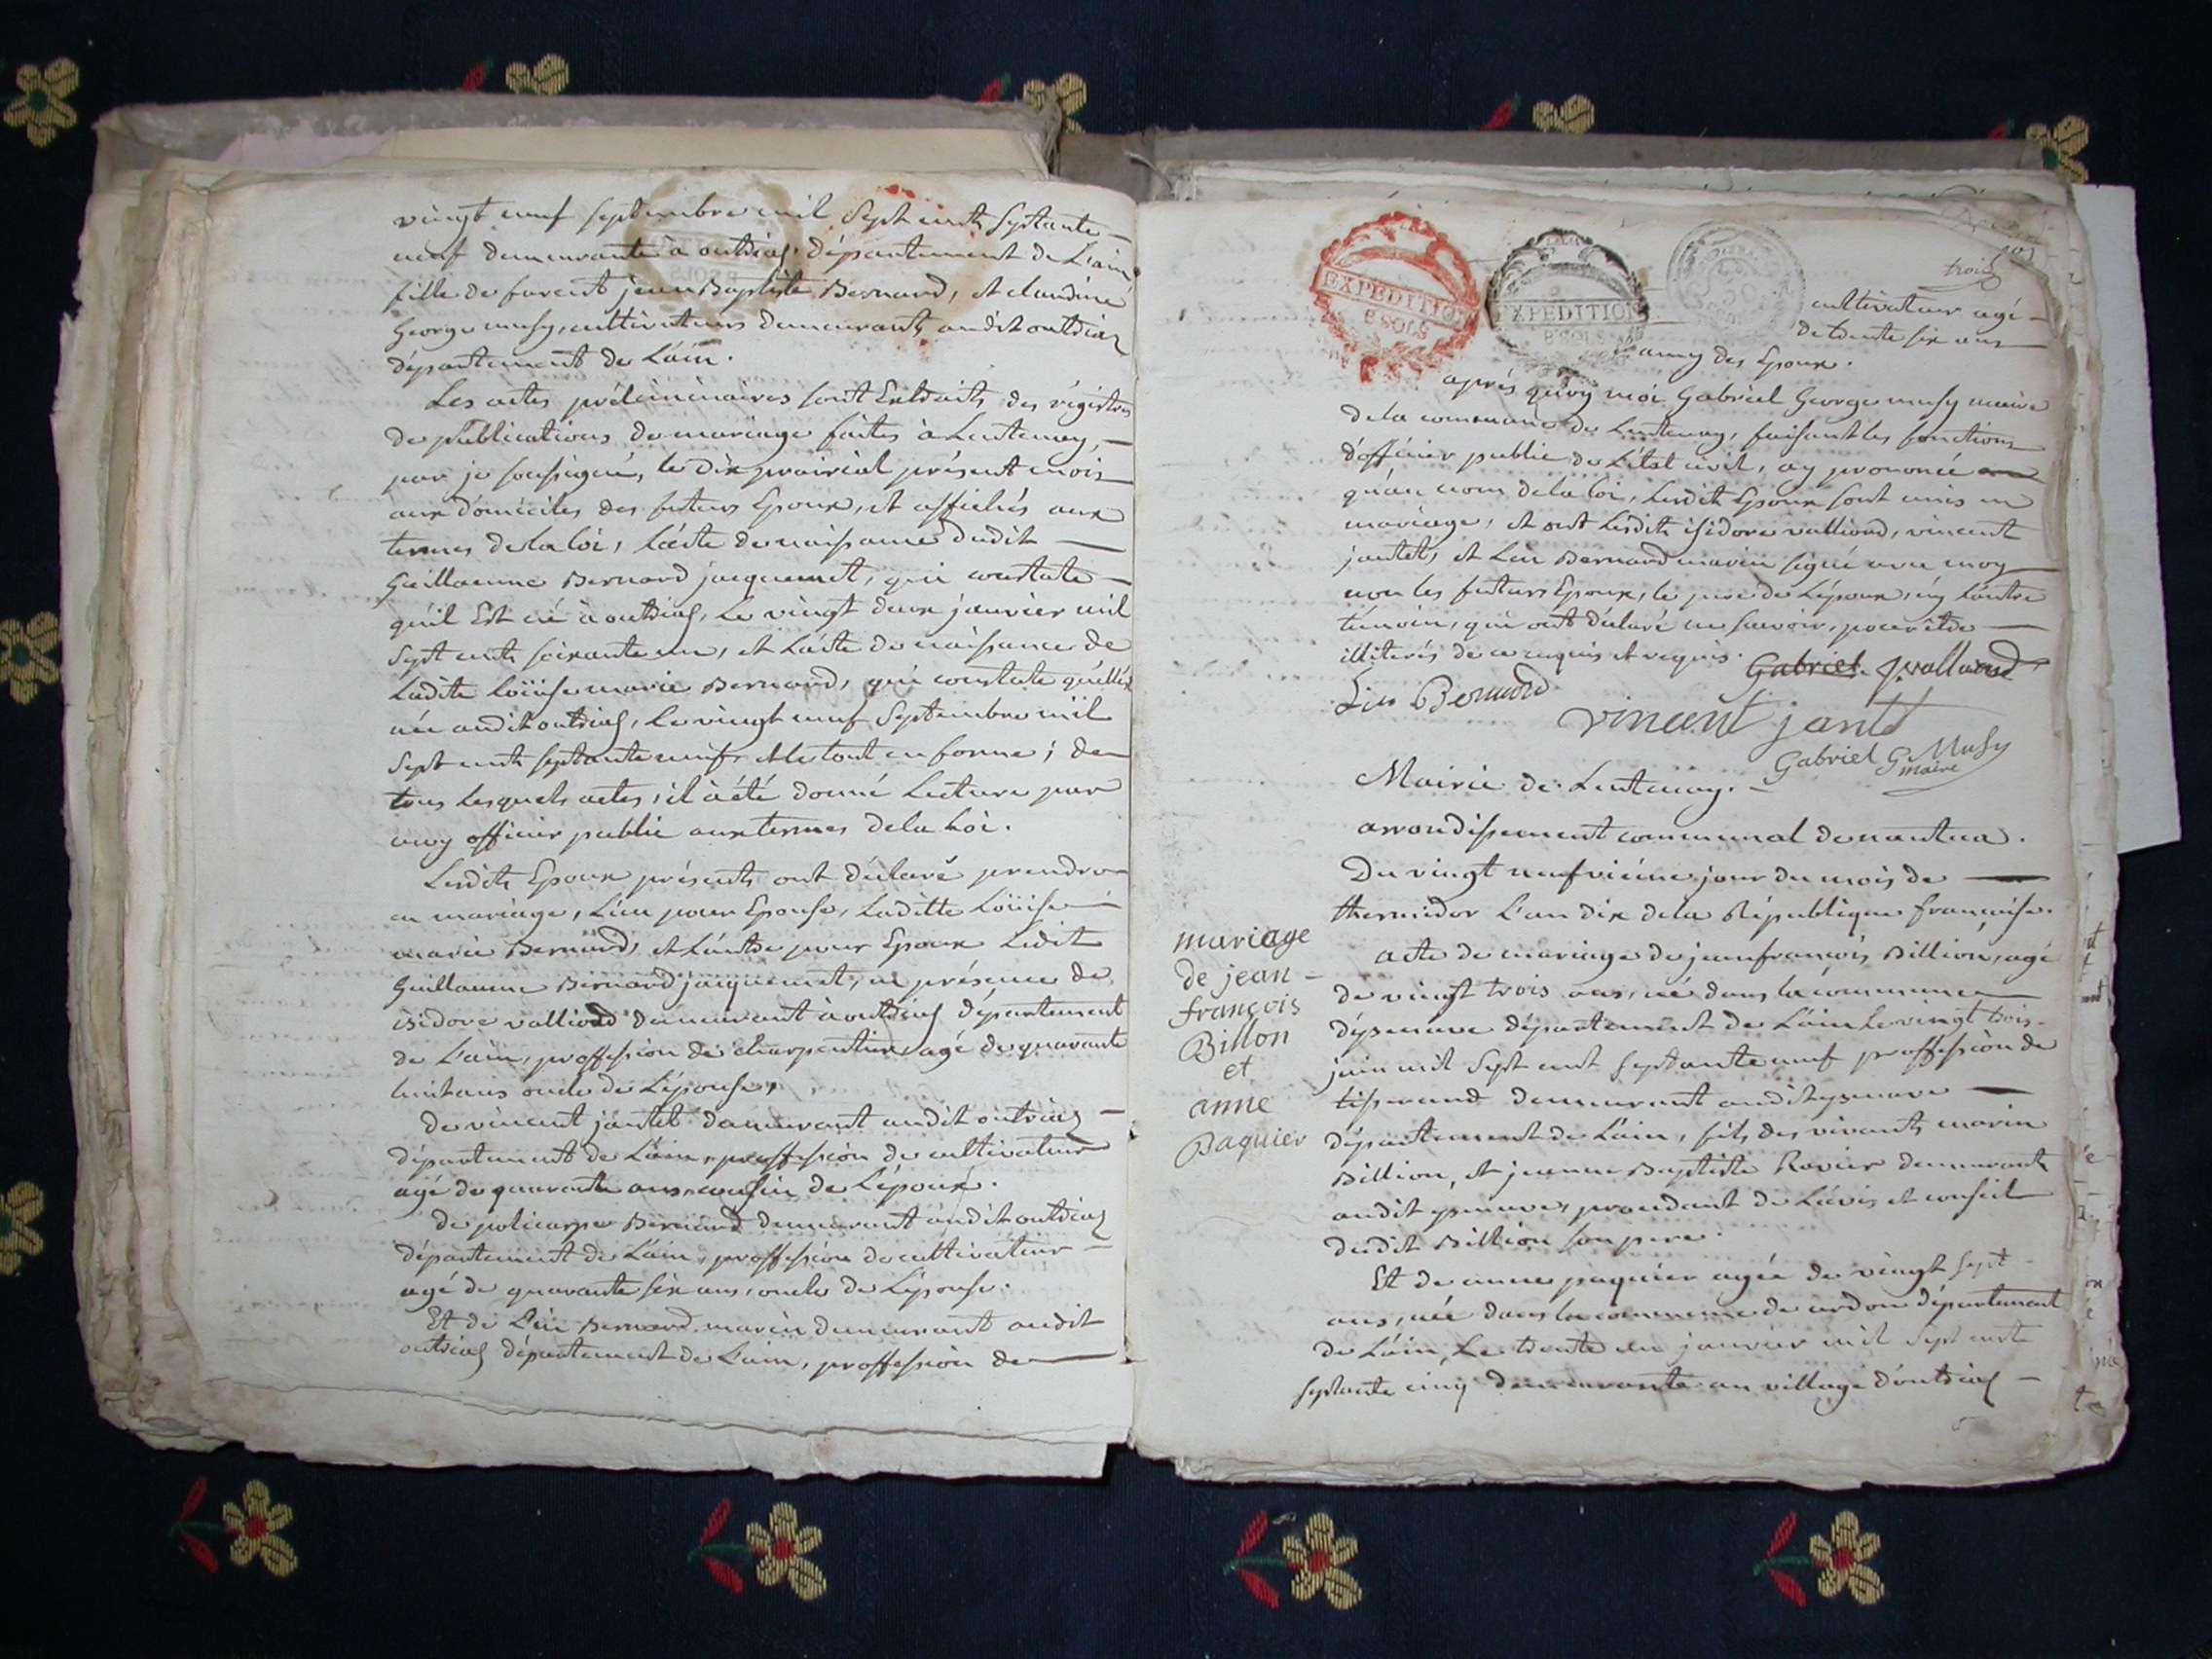 vingt neuf septembre mil Sept cents Septante
neuf demeurante à outriaz, département de L'ain
fille de furent jean Baptiste Bernard, et claudine
George musy, cultivateurs demeurants audit outriaz
département de L'ain.
Les actes préliminaires sont Extraits des régistres
de publications de mariage faites à Lentenay,
par je soussigné, le dix prairial présent mois
aux domiciles des futurs Epoux, et affichés aux
termes de la loi, L'acte de naissance dudit
Guillaume Bernard jacquemet, qui constate
qu'il Est né à outriaz, Le vingt deux janvier mil
Sept cents soixante un, et L'acte de naissance de
Ladite Loüise marie Bernard, qui constate qu'elle
née audit outriaz, Le vingt neuf Septembre mil
Sept cents septante neuf, Le tout en forme; de
tous Lesquels actes, il à été donné Lecture par
moy officier public aux termes de la Loi.
Lesdits Epoux présents ont déclaré prendre
en mariage, L'un pour Epouse, Laditte Loüise
marie Bernard, et L'autre pour Epoux Ledit
Guillaume Bernard jacquemet, en présence de
isidore valliord demeurant à outriaz département
de L'ain, proffession de charpentier, agé de quarante
huit ans oncle de L'épouse,
De vincent jantet demeurant audit outriaz
département de L'ain, proffession de cultivateur
agé de quarante ans cousin de L'époux.
De policarpe Bernard demeurant audit outriaz
département de L'ain, proffession de cultivateur
agé de quarante six ans, oncle de L'épouse.
Et de Lin Bernard marin demeurant audit
outriaz département de L'ain, proffession de
EXPEDITION
8 SOLS
EXPEDITION
8 SOLS
trois
cultivateur agé
de trente six ans
amy des Epoux.
après quoy moi Gabriel George musy maire
de la commune de Lentenay, faisant les fonctions
d'officier public de L'état civil, ay prononcé
qu'au nom de la loi, Lesdit Epoux sont unis en
mariage, et ont Lesdits isidore valliord, vincent
jantet, et Lin Bernard marin signé avec moy
non les futurs Epoux, le père de L'époux, ny L'autre
témoin, qui ont déclaré ne savoir, pour être
illiterés de ce enquis et requis. Gabriel J. valliord
Lin Bernard
vincent jantet
Gabriel G Musy
maire
Mairie de Lentenay.
arrondissement communal de nantua.
Du vingt neufvième jour du mois de
thermidor L'an dix de la République française.
mariage
de jean
françois
Billon
et
anne
Paquier
acte de mariage de jean françois Billion, agé
de vingt trois ans, né dans la commune
d'ysenave département de L'ain Le vingt trois
juin mil Sept cent Septante neuf proffession de
tisserand demeurant audit ysenave
département de L'ain, fils des vivants marin
Billion, et jeanne Baptiste Ravier demeurants
audit ysenave, procédant de L'avis et conseil
dudit Billion son pere.
Et de anne paquier agée de vingt sept
ans, née dans la commune de ardon département
de L'ain, Le trente un janvier mil sept cents
septante cinq demeurante au village d'outriaz